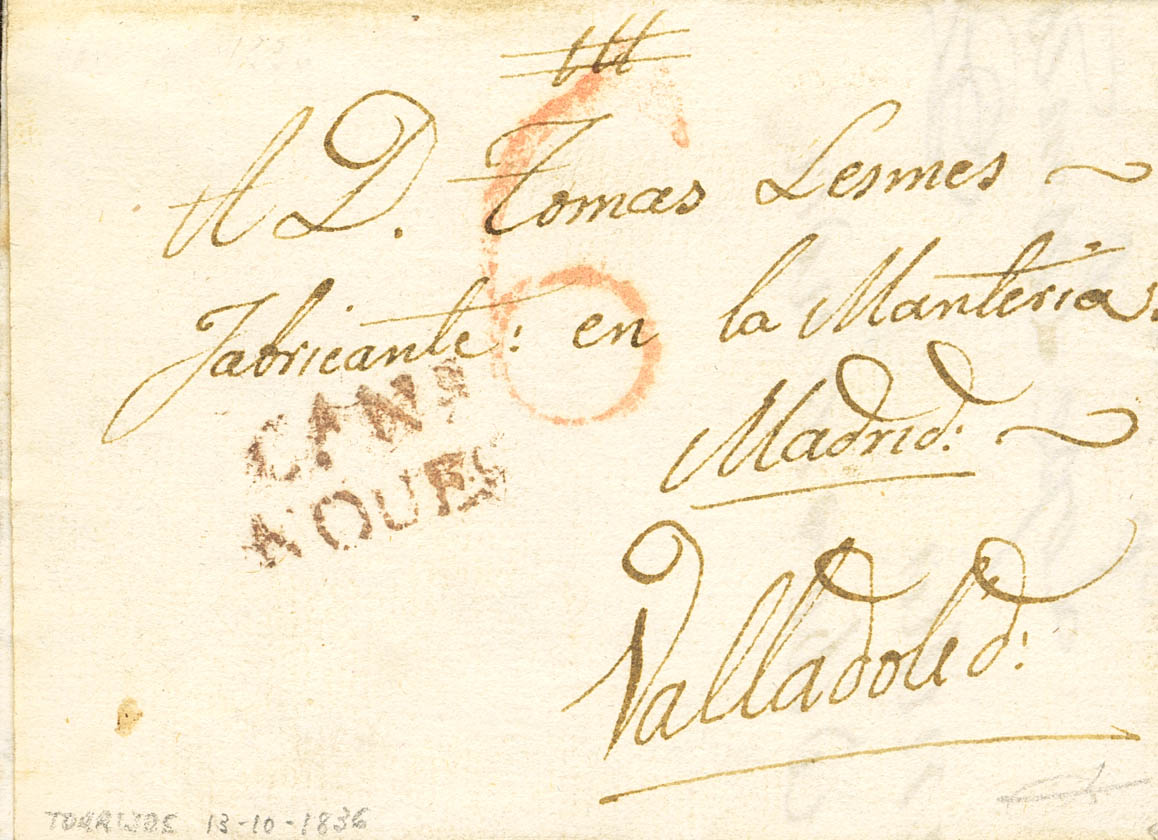 A D. Tomas Lesmes
6
fabricante: en la Manteria
CAN
NOQUES
Madrid:
Valladolid:
TORRIJOS 13-10-1836